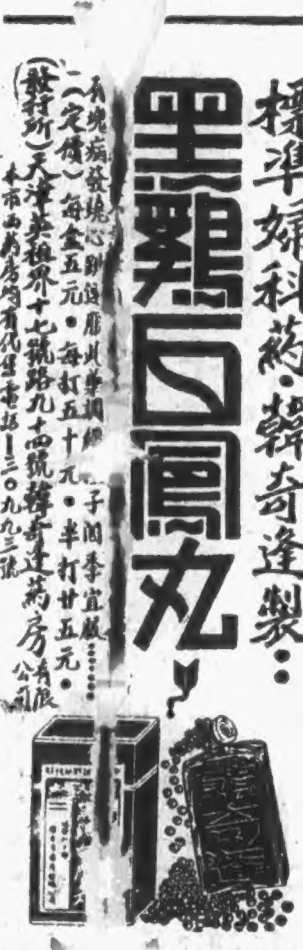 標準婦科葯·韓奇逢製
黑鷄白鳳丸
有塊病發燒心跳
子間季宜服
(定價)每盒五元·每打五十元·半打廿五元·
(發行所)天津英租界十七號路九十四號韓奇逢葯房有限公司
本市西葯房均有代售電話三〇九九三號
韓奇逢